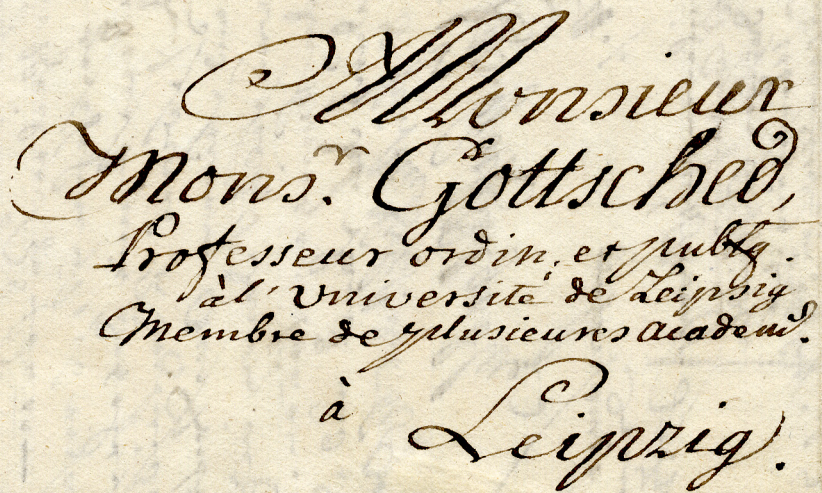 Monsieur
Monsr. Gottsched,
Professeur ordin. et publq.
à l'Université de Leipsig
Membre de plusieures academ.
à
Leipzig.